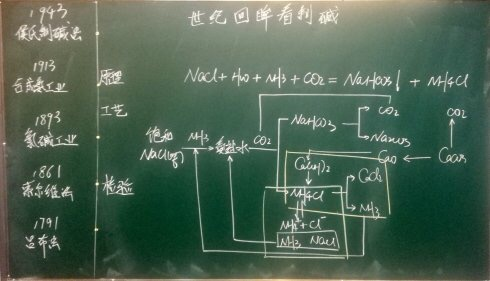 世纪回眸看制碱
1943
侯氏制碱法
1913
合成氨工业
1893
氯碱工业
1861
索尔维法
1791
吕布兰
原理
工艺
检验
NaCl + H₂O + NH3 + CO2 = NaHCO3↓ + NH4Cl
饱和
NaCl(aq)
NH3
氨盐水
CO2
NaHCO3
CO2
Na2CO3
CO2
CaO
CaCO3
Ca(OH)2
NH4Cl
CaCl2
NH3
NH4⁺ + Cl⁻
NH3 NaCl